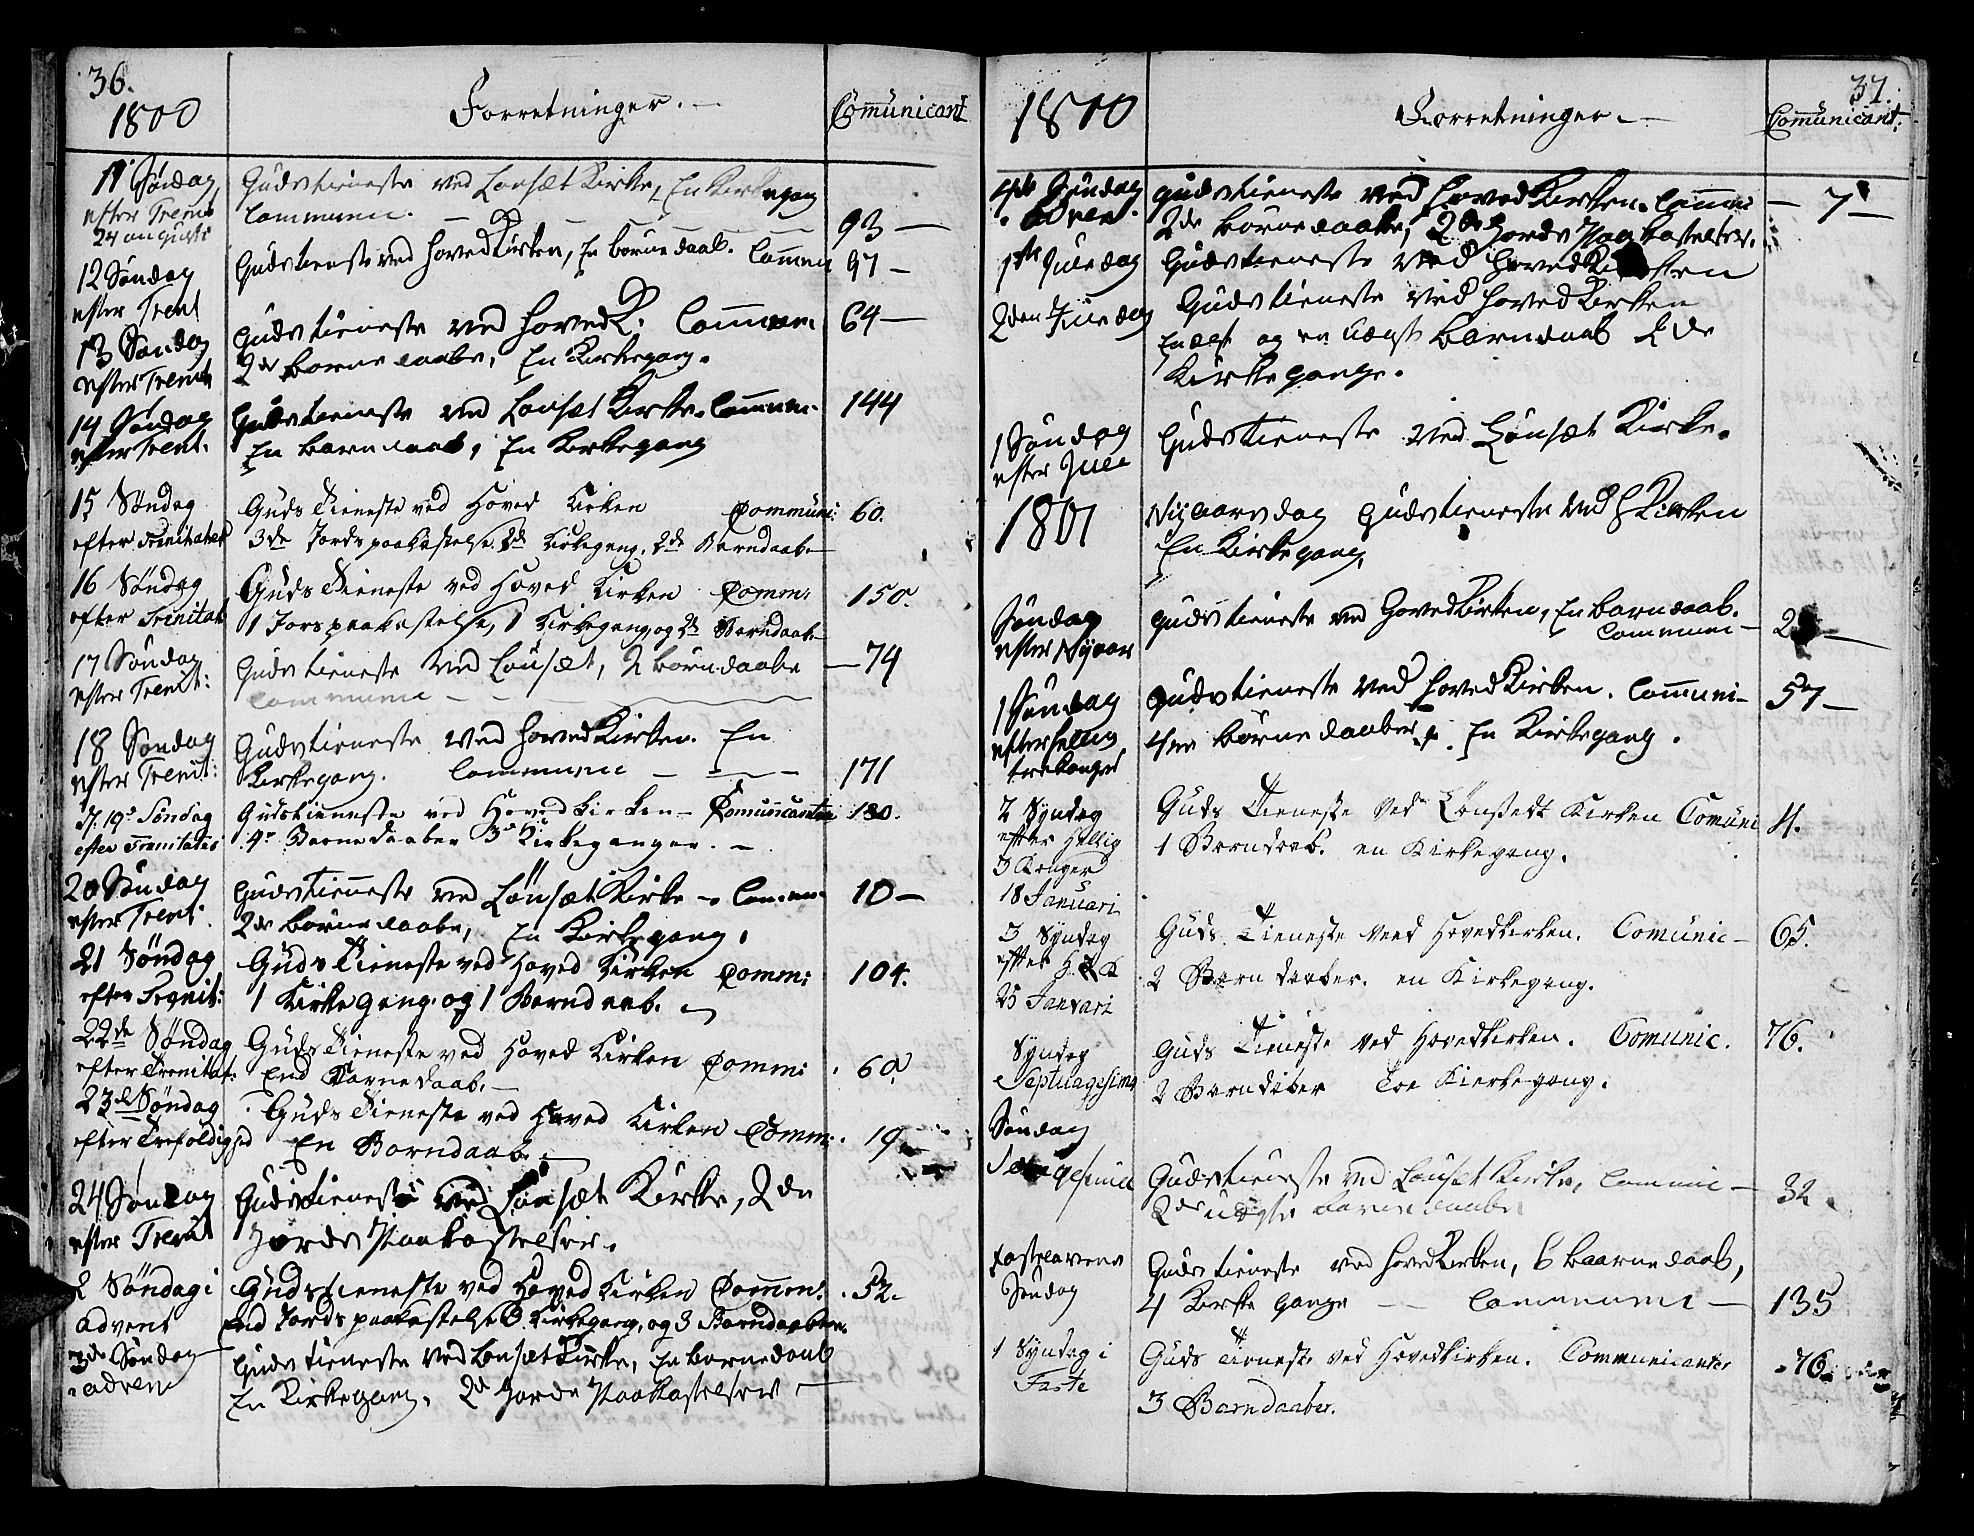 36.
1800
Forretninger. —
Communicant
11 Søndag
efter Trenit
24 augusti
Gudstieneste ved Lonsæt Kirke, En Kirkegang
Communi. — 93 —
12 Søndag
efter Trent
Gudstieneste ved Hoved Kirken, En børne daab. Commun 97 —
13 Søndag
efter Trenit
Gudstieneste ved Hoved K. Commun. 64 —
2de børne daabe, En Kirkegang.
14 Søndag
efter Trent.
Gudstieneste ved Lonsæt Kirke. Commun. 144
En barne daab, En Kirkegang
15 Søndag
efter Trinitatis
Guds Tieneste ved Hoved Kirken Communi: 60.
3de Jords paakastelse. 2de Kirkegang. 2de Barndaabe
16 Søndag
efter Trinitat
Guds Tieneste ved Hoved Kirken Comm: 150.
1 Jorspaakastelse, 1 Kirkegang og 2de Barndaabe
17 Søndag
efter Trenit:
Gudstieneste ved Lonsæt, 2 børnedaabe — 74
Communi —
18 Søndag
efter Trenit:
Gudstieneste ved Hoved Kirken. En
Kirkegang. Communi — — — 171
D. 19de Søndag
efter Trinitatis
Gudstieneste ved Hovedkirken — Communicanter 130.
4re Barnedaaber 3de Kirkeganger. —
20 Søndag
efter Trent.
Gudstieneste ved Lønsæt Kirke — Commun 10 —
2de børne daabe, En Kirkegang.
21 Søndag
efter Treenit:
Guds Tieneste ved Hoved Kirken Comm: 104.
1 Kirkegang. og 1 Barndaab.
22de Søndag
efter Trenitat:
Guds Tieneste ved Hoved Kirken Comm: 60.
End Barnedaab. —
23de Søndag
efter Trefoldighed
Guds Tieneste ved Hoved Kirken Comm: 19
En Barndaab. —
24 Søndag
efter Trenit
Gudstieneste ved Lonsæt Kirke, 2de
Jords Paakastelser.
2 Søndag i
advent
Gudstieneste ved Hoved Kirken Comm: 52.
End Jords paakastelse Kirkegang, og 3 Barndaaber.
3de Søndag
advent
Gudstieneste ved Lonsæt Kirke, En barnedaab
En Kirkegang, 2de Jords Paakastelser —
37.
1800
Forretninger. —
Communicant:
4de Søndag
advent.
Gudstieneste ved Hoved Kirken. Communi — 7 —
2de børnedaabe, 2de Jords Paakastelser.
1ste Juledag
Gudstieneste ved Hoved Kirken
2den Juledag
Gudstieneste ved Hoved Kirken
En ægt og en uægte barndaab 2de
Kirkegange.
1 Søndag
efter Jule
Gudstieneste ved Lonsæt Kirke.
1801
Nyaarsdag Gudstieneste ved H Kirken
En Kirkegang,
Søndag
efter Nyaar
Gudstieneste ved Hoved Kirken, En barndaab.
Communi —
1 Søndag
efter hellig
trekonger
Gudstieneste ved Hoved Kirken. Communi — 57 —
4re børnedaaber. En Kirkegang.
2 Syndag
efter Hellig
3 Konger
18 Januari
Guds Tieneste ved Lønsedt Kirken Comuni 4.
1 Barndaab. en Kirkegang.
3 Syndag
efter H. 3 K
25 Januari
Guds Tieneste veed Hovedkirken. Comunic — 65.
2 Barn daaber. en Kirkegang.
Syndag
Septuagesima
Guds Tieneste ved Hovedkirken. Comunic. 76.
2 Barndåber Toe Kierkegang.
Søndag
Sexagesima
Gudstieneste ved Lonsæt Kirke, Communi — 32.
2de uægte barnedaabe
Fastelavens
Søndag
Gudstieneste ved Hoved Kirken, 6 baarnedaab,
4 Kirkegange — — Communi — 135
1 Syndag i
Faste
Guds Tieneste ved Hovedkirken. Communicanter 76.
3 Barndaaber.